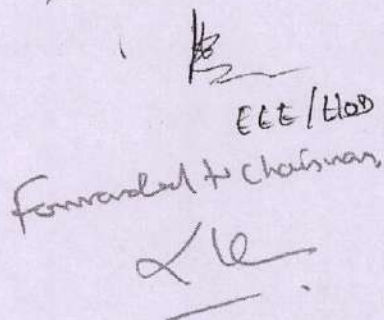 ECE/HOD
Forwarded to Chairman,